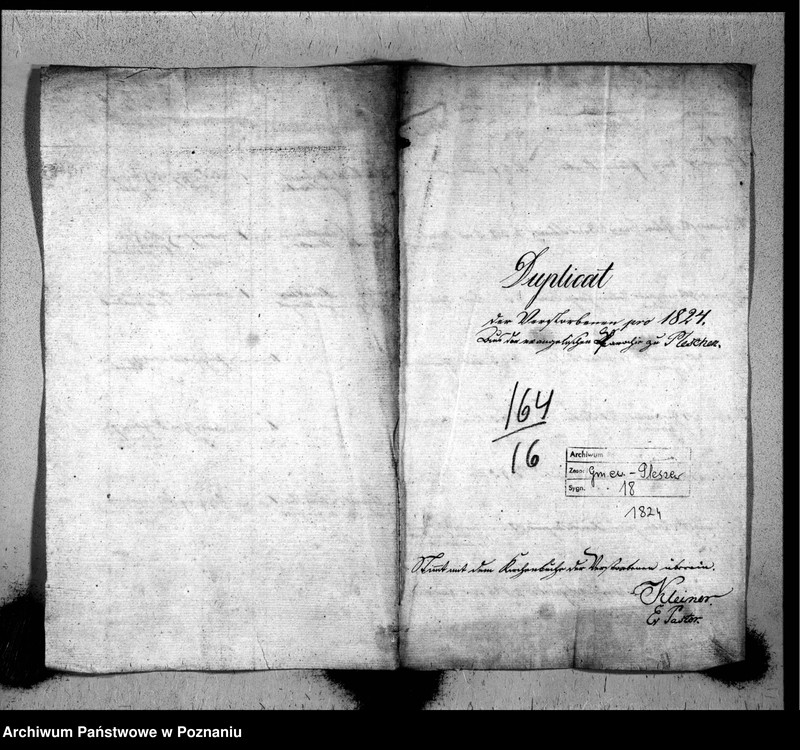 Duplicat
der Verstorbenen pro 1824.
Aus der evangelischen Parochie zu Pleschen.
164
16
Archiwum
Zesp. Gm. ew. - Pleszew
Sygn. 18
1824
Stimmt mit dem Kirchenbuche der Verstorbenen überein.
Kleiner.
Ev Pastor.
Archiwum Państwowe w Poznaniu